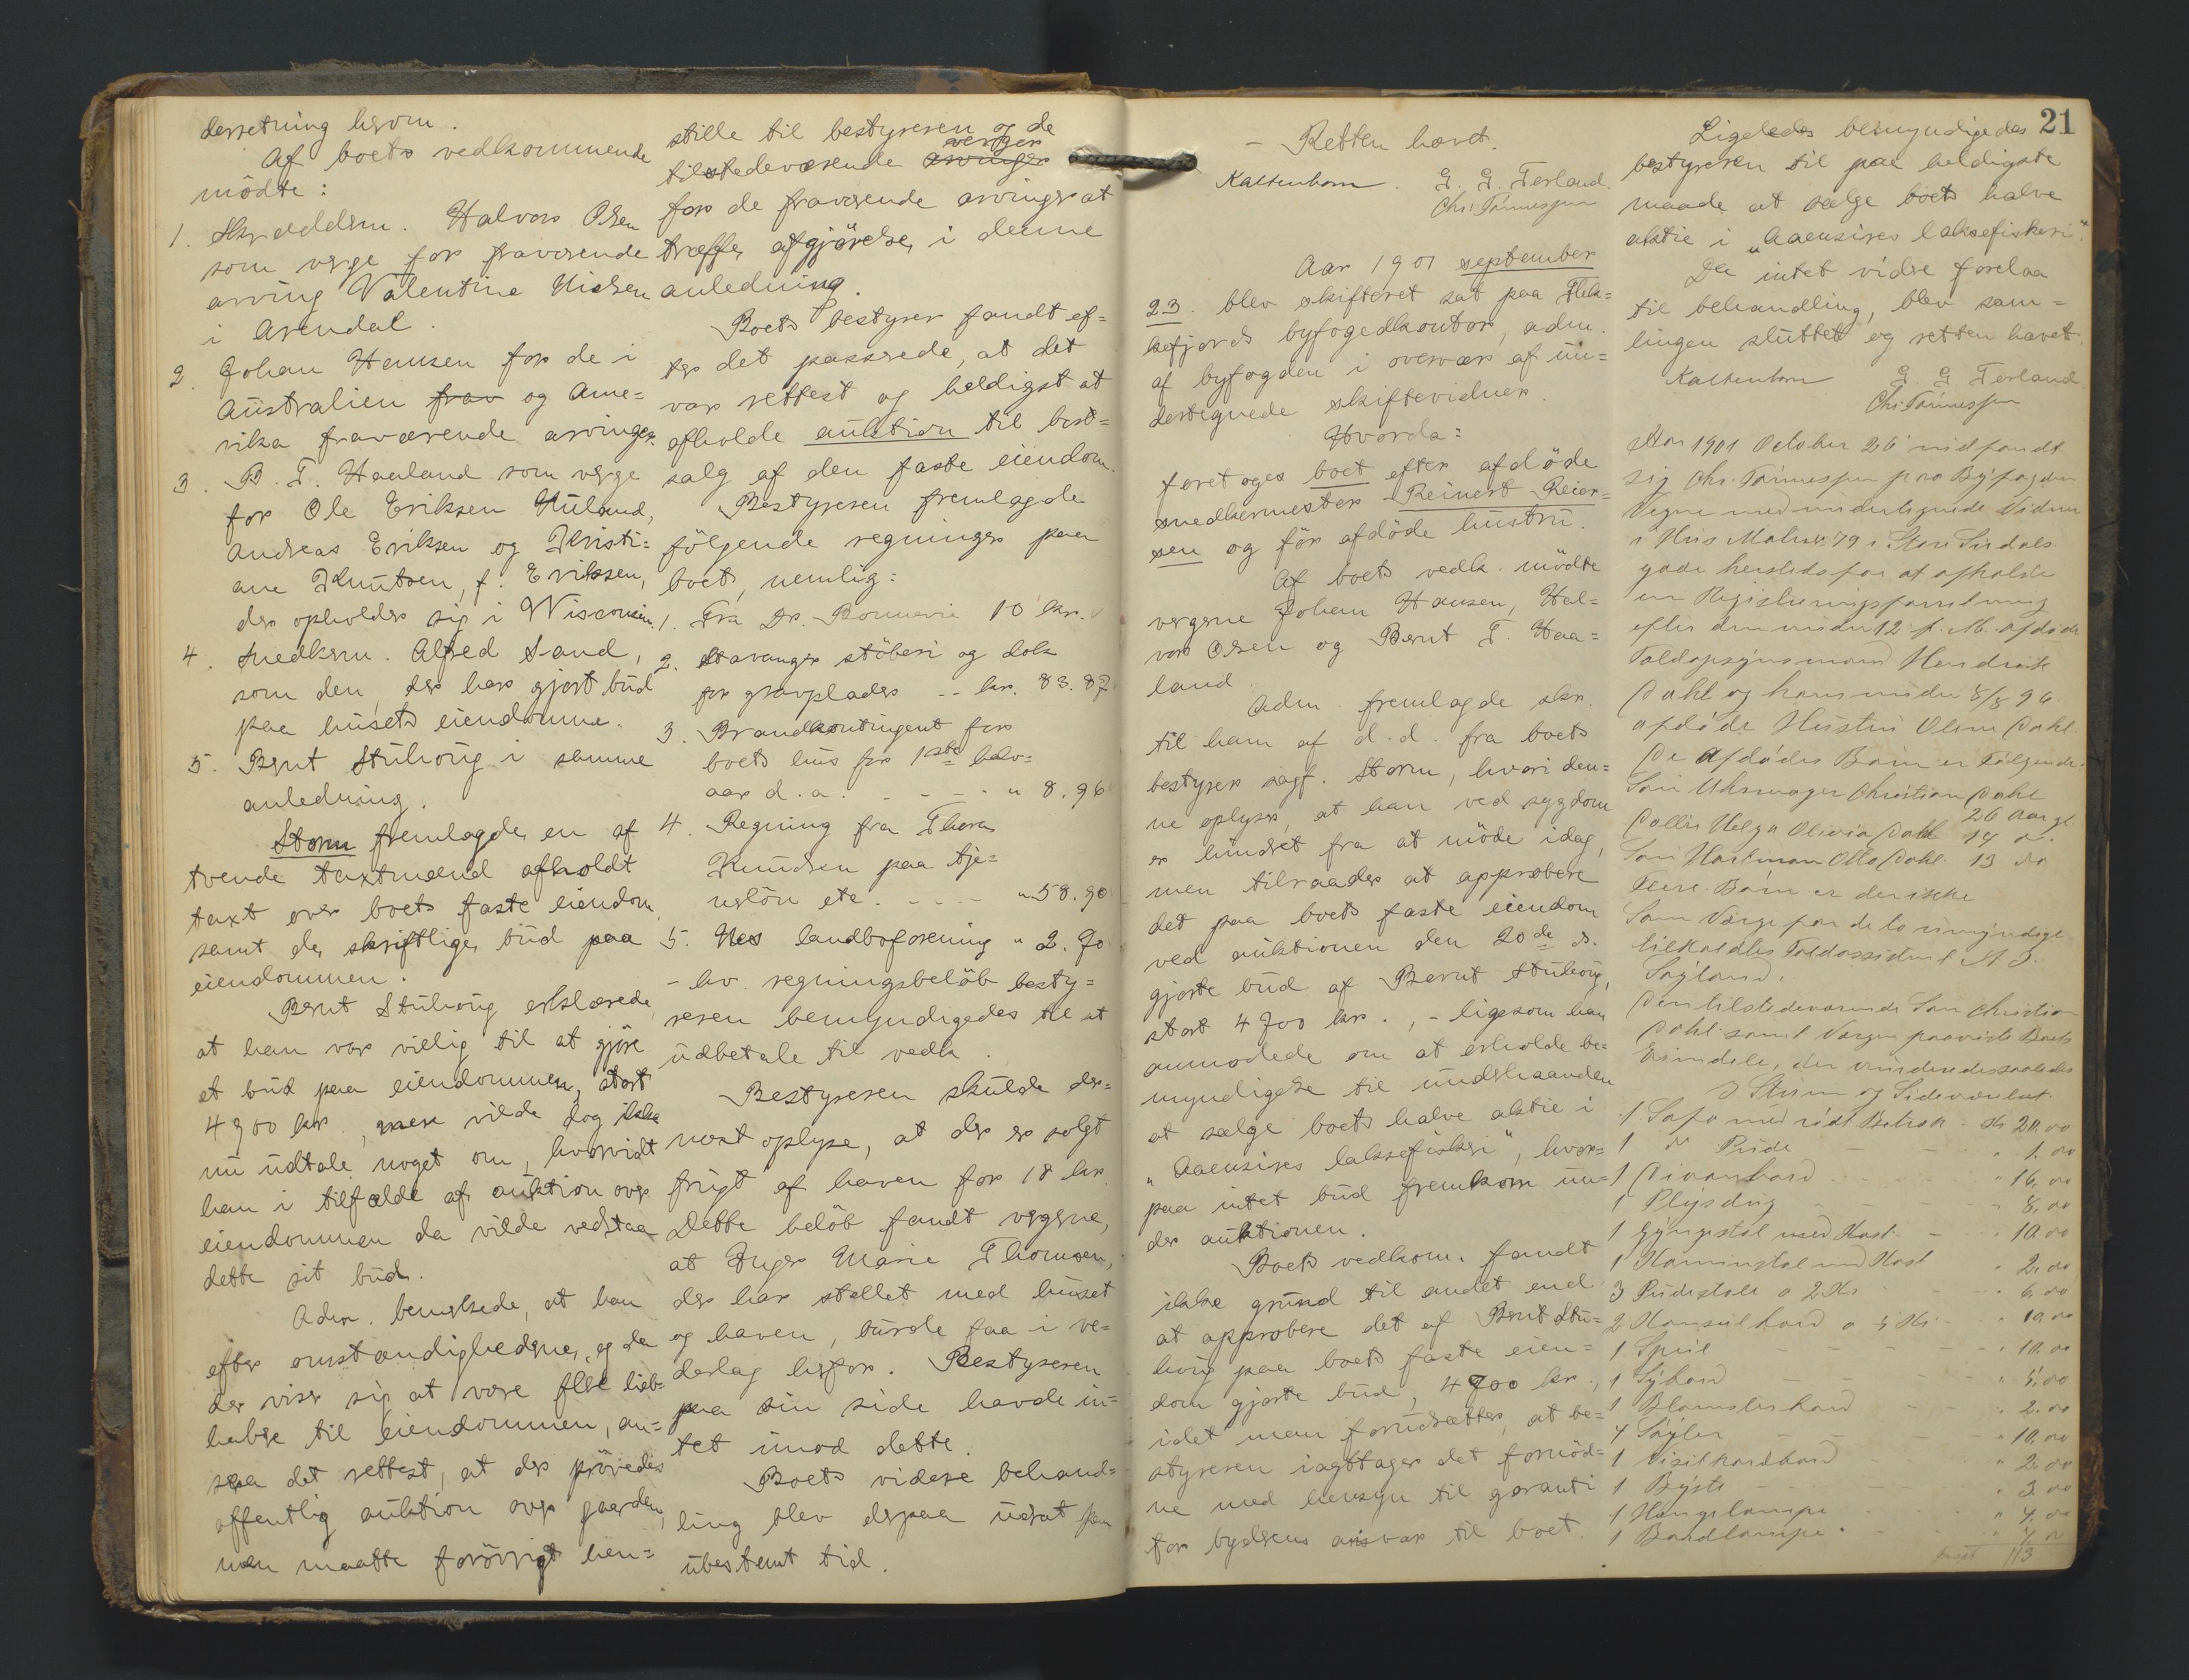 derretning herom.
Af boets vedkommende
mödte:
1. Skræddem. Halvor Olsen
som verge for fraværende
arving Valentine Nielsen
i Arendal.
2. Johan Hansen for de i
Australien frav og Ame=
rika fraværende arvinger.
3. B. T. Haaland som verge
for Ole Eriksen Nuland,
Andreas Eriksen og Kristi=
ane Knutsen, f. Eriksen,
der opholder sig i Wisconsin.
4. Snedkerm. Alfred Sand,
som den, der har gjort bud
paa husets eiendomme.
5. Bernt Stuhoug i samme
anledning.
Storm fremlagde en af
tvende taxtmænd afholdt
taxt over boets faste eiendom,
samt de skriftlige bud paa
eiendommen.
Bernt Stuhoug erklærede,
at han var villig til at gjöre
et bud paa eiendommen, stort
4700 kr., men vilde dog ikke
nu udtale noget om, hvorvidt
han i tilfælde af auktion over
eiendommen da vilde vedstaa
dette sit bud.
Adm. bemerkede, at han
efter omstændighederne, og da
der viser sig at være flere lieb=
habere til eiendommen, an=
saa det rettest, at der prövedes
offentlig auktion over gaarden,
men maatte forövrigt hen=
stille til bestyreren og de
tilstedeværende arvinger verger
for de fraværende arvinger at
træffe afgjörelse i denne
anledning.
Boets bestyrer fandt ef=
ter det passerede, at det
var rettest og heldigst at
afholde auktion til bort=
salg af den faste eiendom.
Bestyreren fremlagde
fölgende regninger paa
boet, nemlig:
1. Fra Dr. Bonnevie 10 kr.
2. Stavanger stöberi og dok
for gravplader -- kr. 83.87
3. Brandkontingent for
boets hus for 1ste halv=
aar d. a. - - - - " 8.96
4. Regning fra Thora
Knudsen paa tje=
neslön etc. - - - - " 58.90
5. Nes landboforening " 2.70
- hv. regningsbelöb besty=
reren bemyndigedes til at
udbetale til vedk.
Bestyreren skulde der=
næst oplyse, at der er solgt
frugt af haven for 18 kr.
Dette belöb fandt vergerne,
at Inger Marie Thomsen,
der har stellet med huset
og haven, burde faa i ve=
derlag herfor. Bestyreren
paa sin side havde in=
tet imod dette.
Boets videre behand=
ling blev derpaa udsat paa
ubestemt tid.
- Retten hævet.
Kaltenborn. G. G. Terland.
Chr. Tönnessen
Aar 1901 september
23. blev skifteret sat paa Flek=
kefjords byfogedkontor, adm.
af byfogden i overvær af un=
dertegnede skiftevidner.
Hvorda:
foretoges boet efter afdöde
snedkermester Reinert Reier=
sen og för afdöde hustru.
Af boets vedk. mödte
vergerne Johan Hansen, Hal=
vor Olsen og Bernt T. Haa=
land.
Adm. fremlagde skr.
til ham af d. d. fra boets
bestyrer sagf. Storm, hvori den=
ne oplyser, at han ved sygdom
er hindret fra at möde idag,
men tilraader at approbere
det paa boets faste eiendom
ved auktionen den 20de ds.
gjorte bud af Bernt Stuhoug,
stort 4700 kr., - ligesom han
anmodede om at erholde be=
myndigelse til underhaanden
at sælge boets halve aktie i
"Aaensires laksefiskeri", hvor=
paa intet bud fremkom un=
der auktionen.
Boets vedkom. fandt
ikke grund til andet end
at approbere det af Bernt Stu=
houg paa boets faste eien=
dom gjorte bud, 4700 kr.,
idet man forudsætter, at be=
styreren iagttager det fornöd=
ne med hensyn til garanti
for bydeeens ansvar til boet.
21
Ligeledes bemyndigedes
bestyreren til paa heldigste
maade at sælge boets halve
aktie i "Aaensires laksefiskeri".
Da intet videre forelaa
til behandling, blev sam=
lingen sluttet og retten hævet.
Kaltenborn G. G. Terland
Chr. Tönnessen
Aar 1901 October 26 indfandt
sig Chr. Tönnessen paa Byfogdens
Vegne med undertegnede Vidner
i Hus Matr. nr. 79 i Store Sirdals
gade hersteds for at afholde
en Registreringsforretning
efter den under 12 f. M. afdöde
Toldopsynsmand Hendrik
Dahl og hans under 8/8 96
afdöde Hustru Olene Dahl.
De Afdödes Börn er Fölgende:
Sön Uhrmager Christian Dahl
26 Aar gl.
Datter Helga Olivia Dahl 14 do.
Sön Hartman Otto Dahl 13 do
Flere Börn er der ikke
Som Værge for de to umyndige
tilkaldtes Toldassistent
Söyland.
Den tilstedeværende Sön Christian
Dahl samt Værgen paaviste Boets
Eiendele, der vurderedes saaledes
I Stuen og Sideværelset.
1 Sofa med rödt Betræk - Kr 20,00
1 do Pude - - - " 1.00
1 Divanbord - - - " 16,00
1 Plysdug - - - " 8,00
1 Gyngestol med Kast - " 10.00
1 Kammerstol med Kast " 2.00
3 Rudestole a 2 Kr - - " 6.00
2 Konsulbord a 5 Kr - " 10.00
1 Speil - - - " 10.00
1 Sybord - - - " 5,00
1 Blomsterbord - - - " 2.00
4 Söyler - - - " 10,00
1 Visitkortbord - - - " 2,00
1 Byste - - - " 3.00
1 Hængelampe - - - " 4,00
1 Bordlampe - - - " 4,00
113